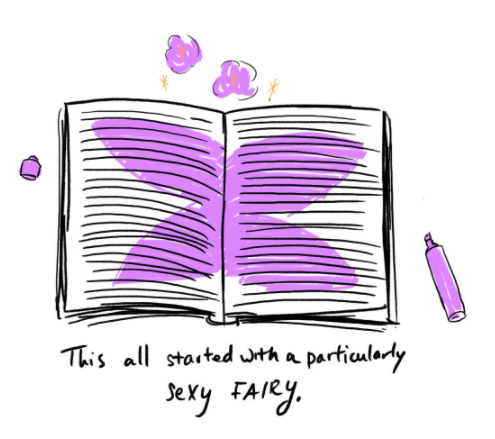 This all started with a particularly
sexy FAIRY.